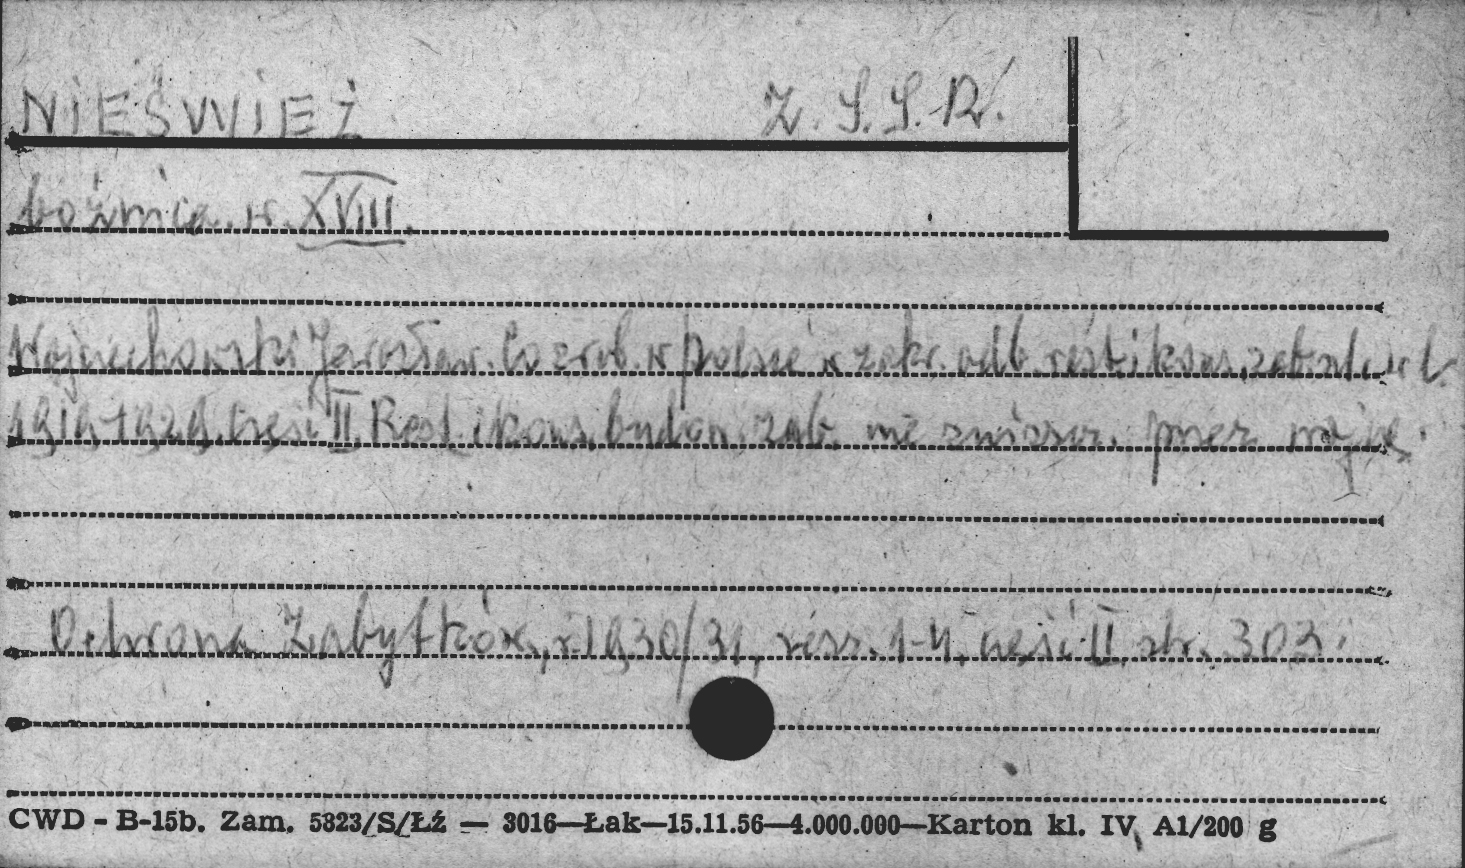 NIEŚWIEŻ Z.S.S.R.
bożnica w. XVIII.
Wojciechowski Jarosław. Co zrob. w Polsce w zakr. odb. rest. i kons. zab. w l.
1919-1929. Część II. Rest. i kons. budow. zab. nie zniszcz. przez wojnę.
Ochrona Zabytków, r. 1930/31, zesz. 1-4, część II str. 303.
CWD - B-15b. Zam. 5323/S/Łź — 3016—Łak—15.11.56—4.000.000—Karton kl. IV A1/200 g